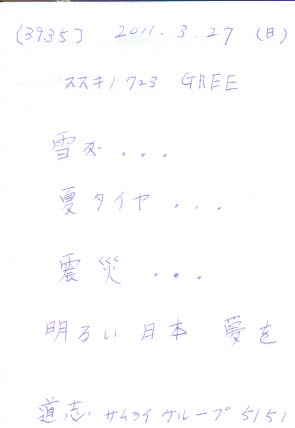 [3935] 2011.3.27 (日)
ススキノ 723 GREE
雪が...
夏タイヤ...
震災...
明るい日本 夢を
道志 サムライグループ 5151